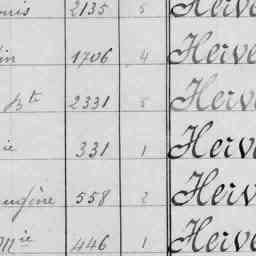 ouis 2135 5 Herve
in 1706 4 Herve
Bte 2331 5 Herve
ie 331 1 Herve
ugène 558 2 Herv
Mie 446 1 Herve